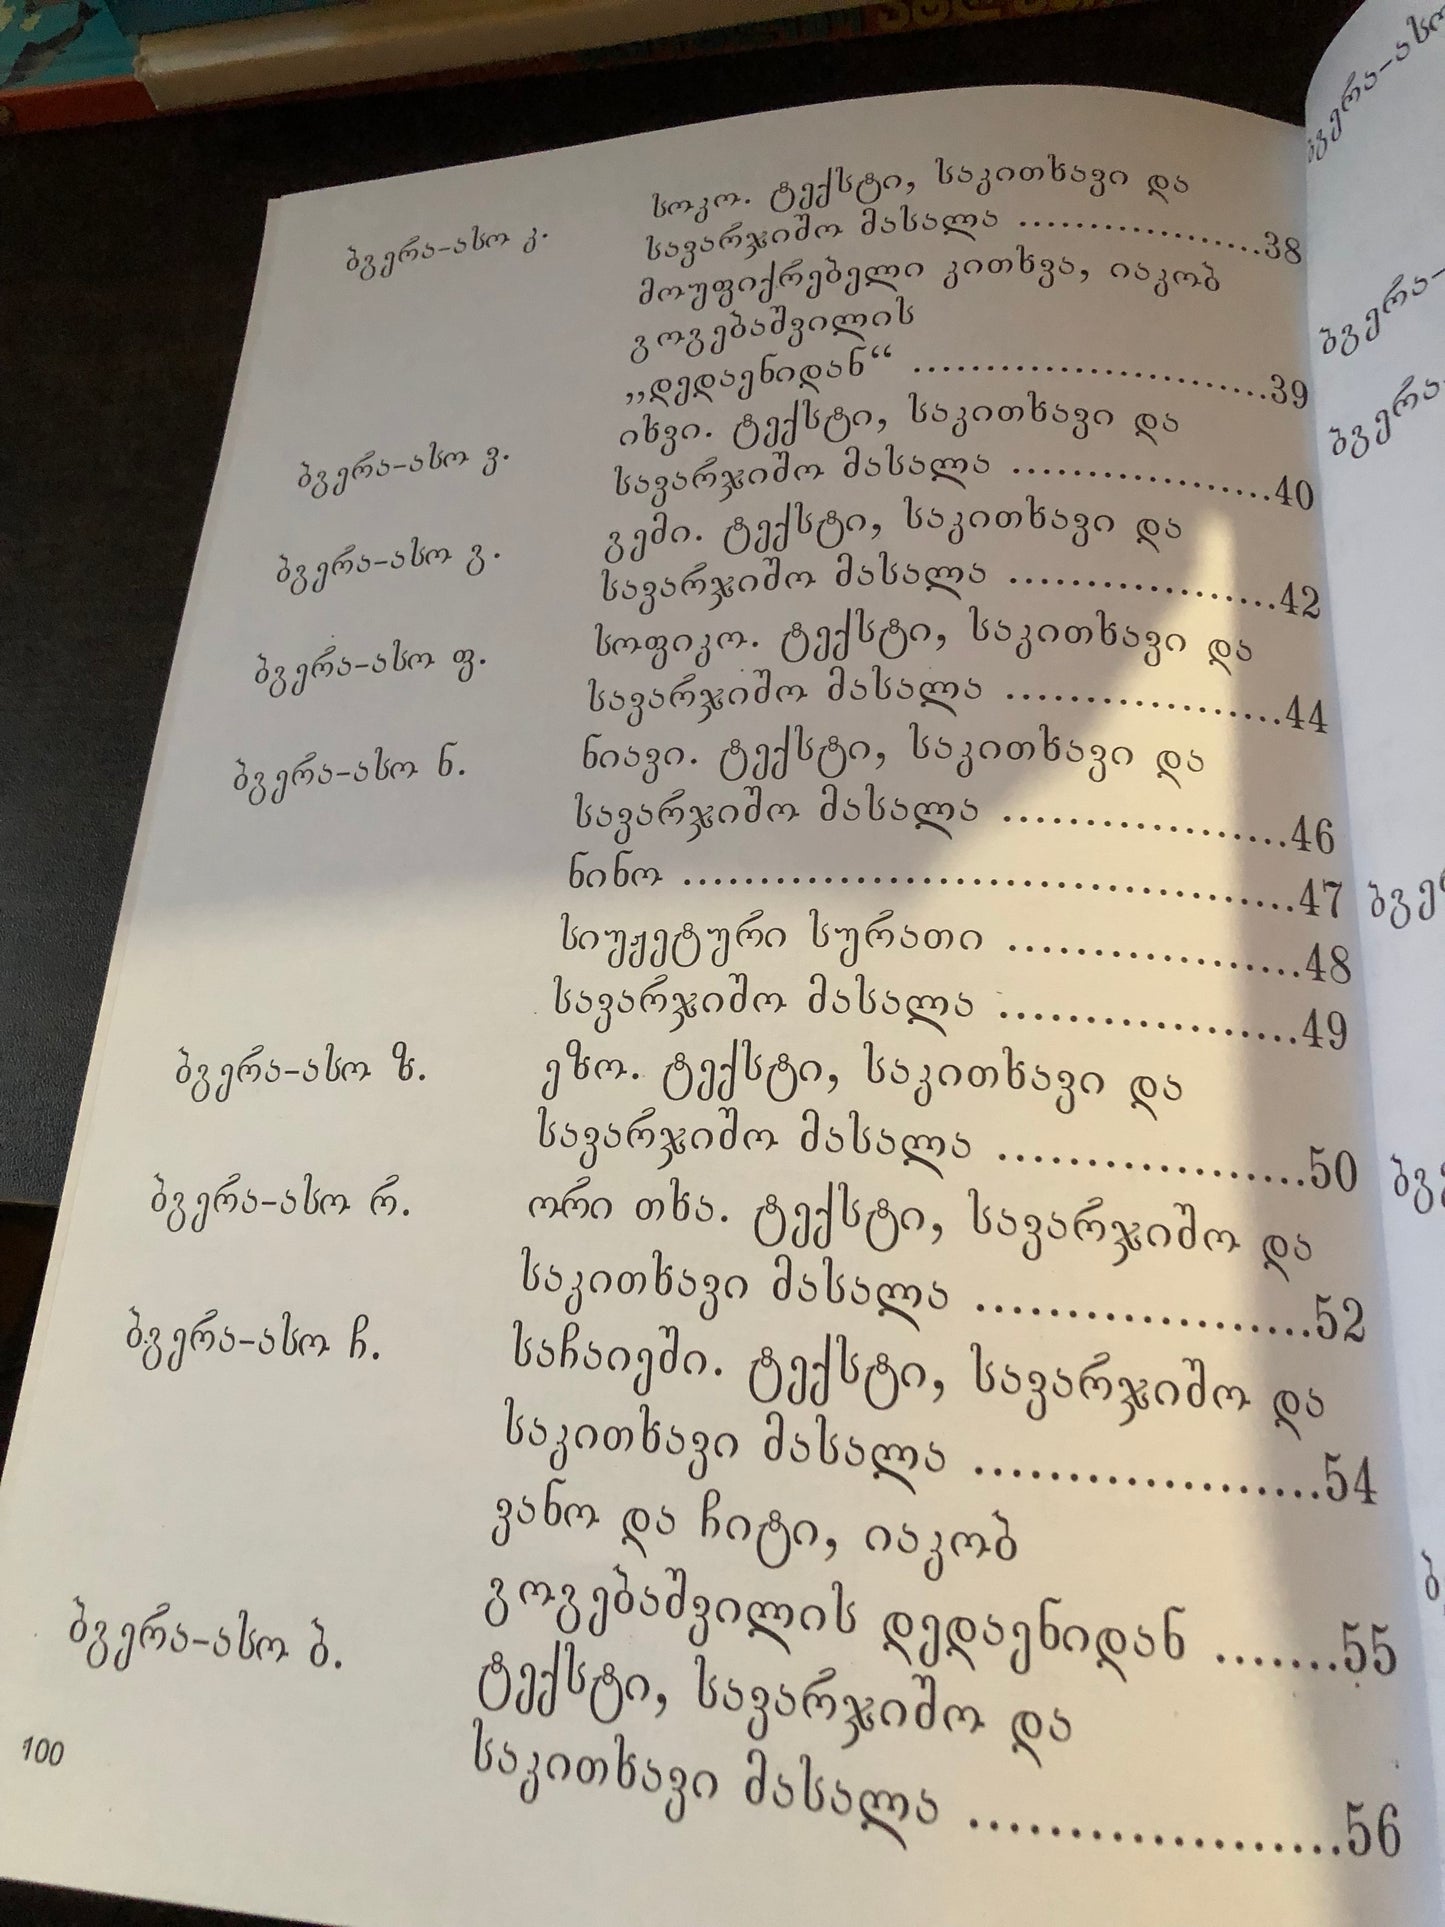 ბგერა-ასო კ. სოკო. ტექსტი, საკითხავი და
სავარჯიშო მასალა ..................38
მოუფიქრებელი კითხვა, იაკობ
გოგებაშვილის
„დედაენიდან“ .........................39
ბგერა-ასო ვ. იხვი. ტექსტი, საკითხავი და
სავარჯიშო მასალა ..................40
ბგერა-ასო გ. გემი. ტექსტი, საკითხავი და
სავარჯიშო მასალა ..................42
ბგერა-ასო ფ. სოფიკო. ტექსტი, საკითხავი და
სავარჯიშო მასალა ..................44
ბგერა-ასო ნ. ნიავი. ტექსტი, საკითხავი და
სავარჯიშო მასალა ..................46
ნინო .......................................47
სიუჟეტური სურათი ..................48
სავარჯიშო მასალა ..................49
ბგერა-ასო ზ. ეზო. ტექსტი, საკითხავი და
სავარჯიშო მასალა ..................50
ბგერა-ასო რ. ორი თხა. ტექსტი, სავარჯიშო და
საკითხავი მასალა ...................52
ბგერა-ასო ჩ. საჩაიეში. ტექსტი, სავარჯიშო და
საკითხავი მასალა ...................54
ვანო და ჩიტი, იაკობ
გოგებაშვილის დედაენიდან .......55
ბგერა-ასო ბ. ტექსტი, სავარჯიშო და
საკითხავი მასალა ...................56
100
ბგერა-ასო
ბგერა-
ბგერა